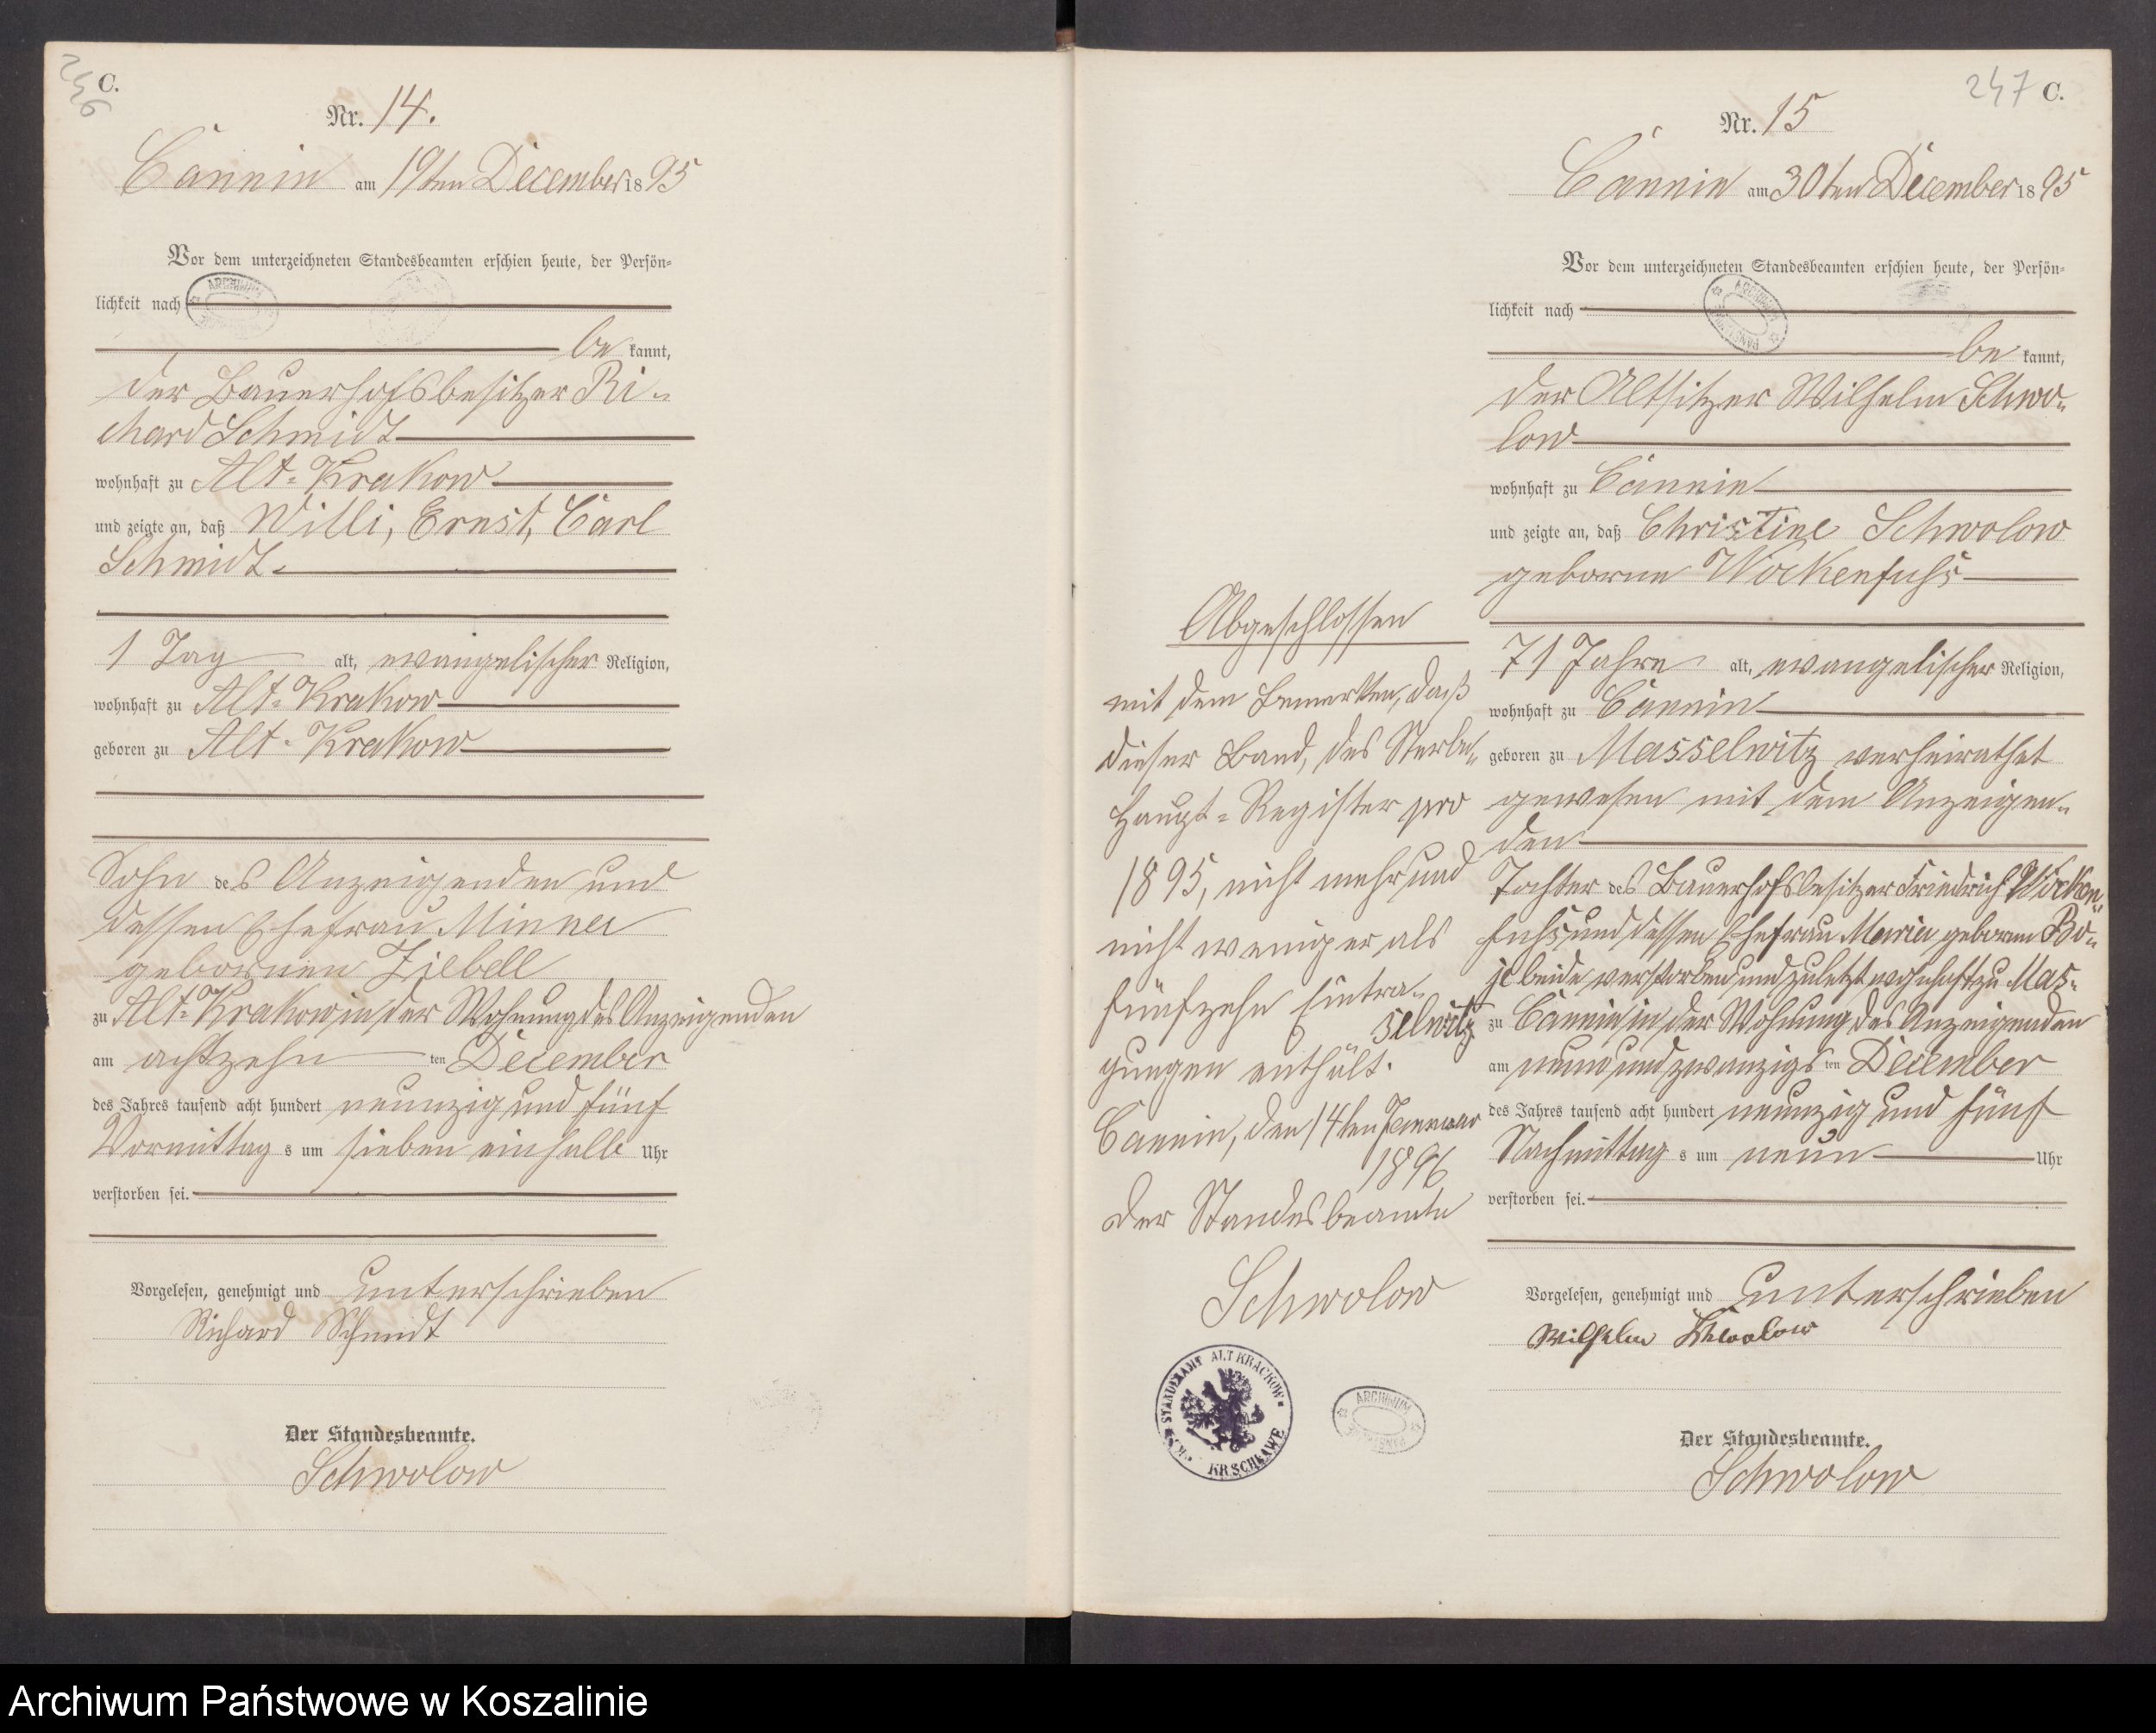 246
C.
Nr. 14.
Cannin am 19ten December 1895
Vor dem unterzeichneten Standesbeamten erschien heute, der Persön-
lichkeit nach
be kannt,
der Bauerhofsbesitzer Ri-
chard Schmidt
wohnhaft zu Alt-Krakow
und zeigte an, daß Willi, Ernst, Carl
Schmidt.
1 Tag alt, evangelischer Religion,
wohnhaft zu Alt-Krakow
geboren zu Alt-Krakow
Sohn des Anzeigenden und
dessen Ehefrau Minna
gebornen Ziebell
zu Alt-Krakow in der Wohnung des Anzeigenden
am achtzehn ten December
des Jahres tausend acht hundert neunzig und fünf
Vormittag s um sieben einhalb Uhr
verstorben sei.
Vorgelesen, genehmigt und unterschrieben
Richard Schmidt
Der Standesbeamte.
Schwolow
247 C.
Nr. 15
Cannin am 30ten December 1895
Vor dem unterzeichneten Standesbeamten erschien heute, der Persön-
lichkeit nach
be kannt,
der Altsitzer Wilhelm Schwo-
low
wohnhaft zu Cannin
und zeigte an, daß Christine Schwolow
geborne Wockenfuhs
71 Jahre alt, evangelischer Religion,
wohnhaft zu Cannin
geboren zu Masselwitz verheirathet
gewesen mit dem Anzeigen-
den
Tochter des Bauerhofsbesitzer Friedrich Wocken-
fuhs und dessen Ehefrau Maria geborne Bo-
je beide verstorben und zuletzt wohnhaft zu Mas-
selwitz
zu Cannin in der Wohnung des Anzeigenden
am neun und zwanzigs ten December
des Jahres tausend acht hundert neunzig und fünf
Nachmittag s um neun Uhr
verstorben sei.
Vorgelesen, genehmigt und unterschrieben
Wilhelm Schwolow
Der Standesbeamte.
Schwolow
Abgeschlossen
mit dem Bemerken, daß
dieser Band, des Sterbe-
Haupt-Register pro
1895, nicht mehr und
nicht weniger als
fünfzehn Eintra-
gungen enthält.
Cannin, den 14ten Januar
1896
Der Standesbeamte
Schwolow
STANDESAMT ALT KRACKOW
KR. SCHLAWE
ARCHIWUM
Archiwum Państwowe w Koszalinie